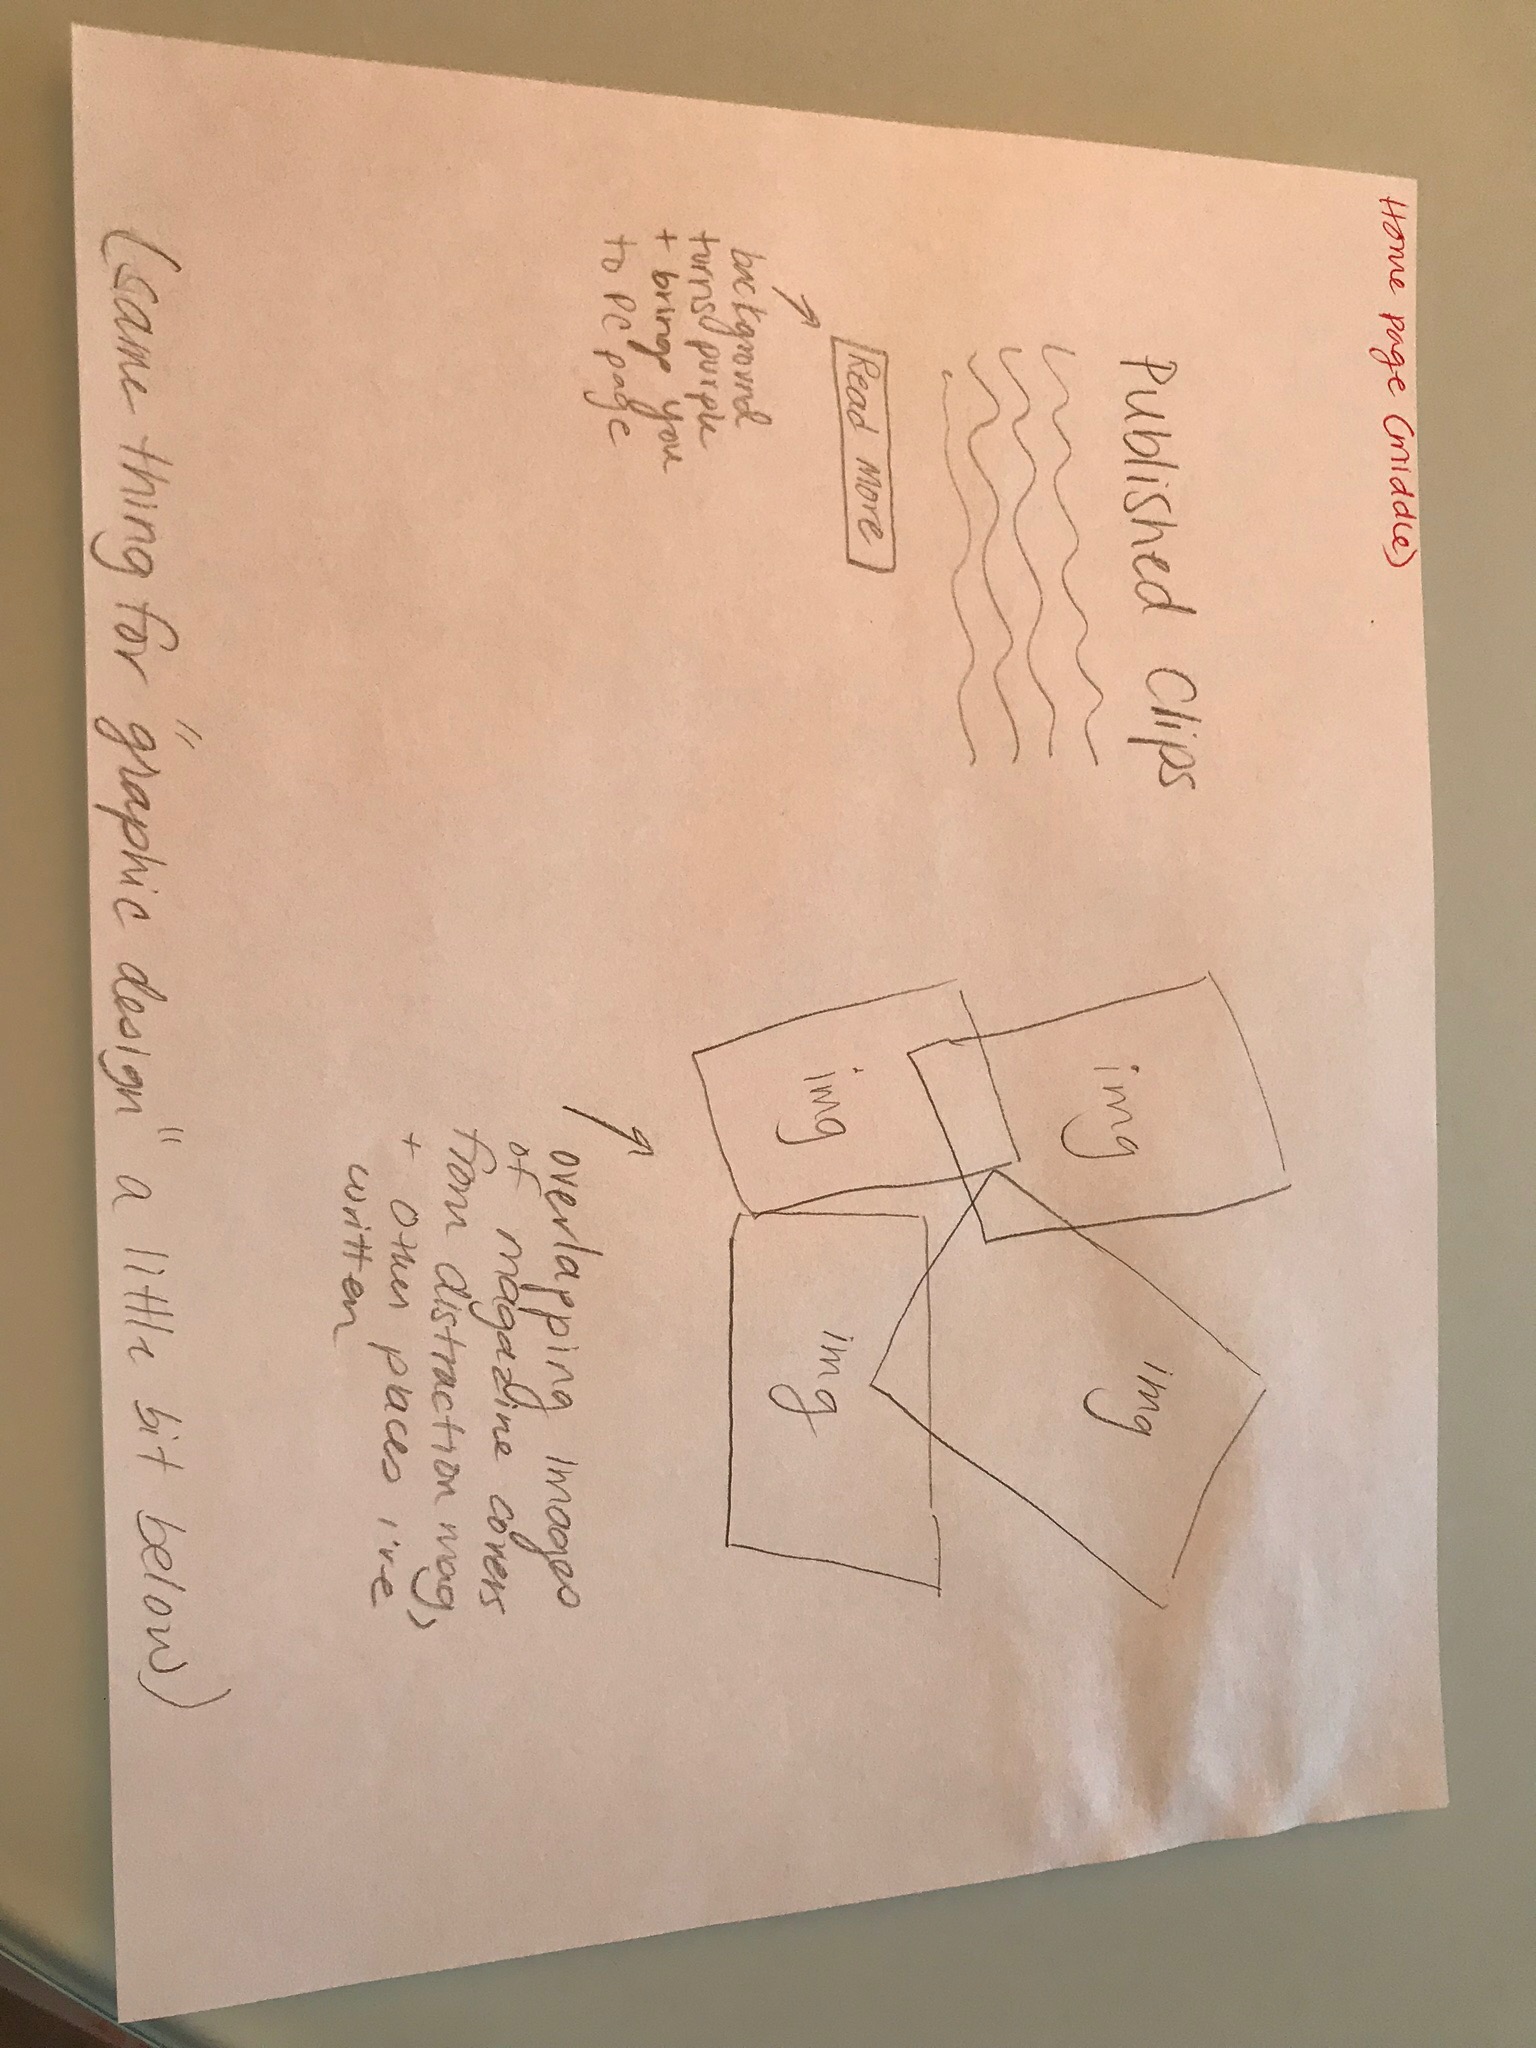 Home page (middle)
Published Clips
Read more
background
turns purple
+ brings you
to PC page
img
img
img
img
overlapping images
of magazine covers
from distraction mag,
+ other places i've
written
(same thing for "graphic design" a little bit below)